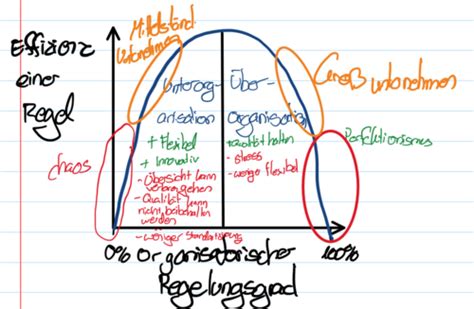 Effizienz
einer
Regel
Mittelstand
Unternehmen
Großunternehmen
Unterorg-
anisation
+ Flexibel
+ Innovativ
- Übersicht kann
verlorengehen
- Qualität kann
nicht beibehalten
werden
- weniger Standardisierung
Über-
organisation
- stress
- wenige flexibel
chaos
Perfektionismus
0%
100%
Organisatorischer
Regelungsgrad